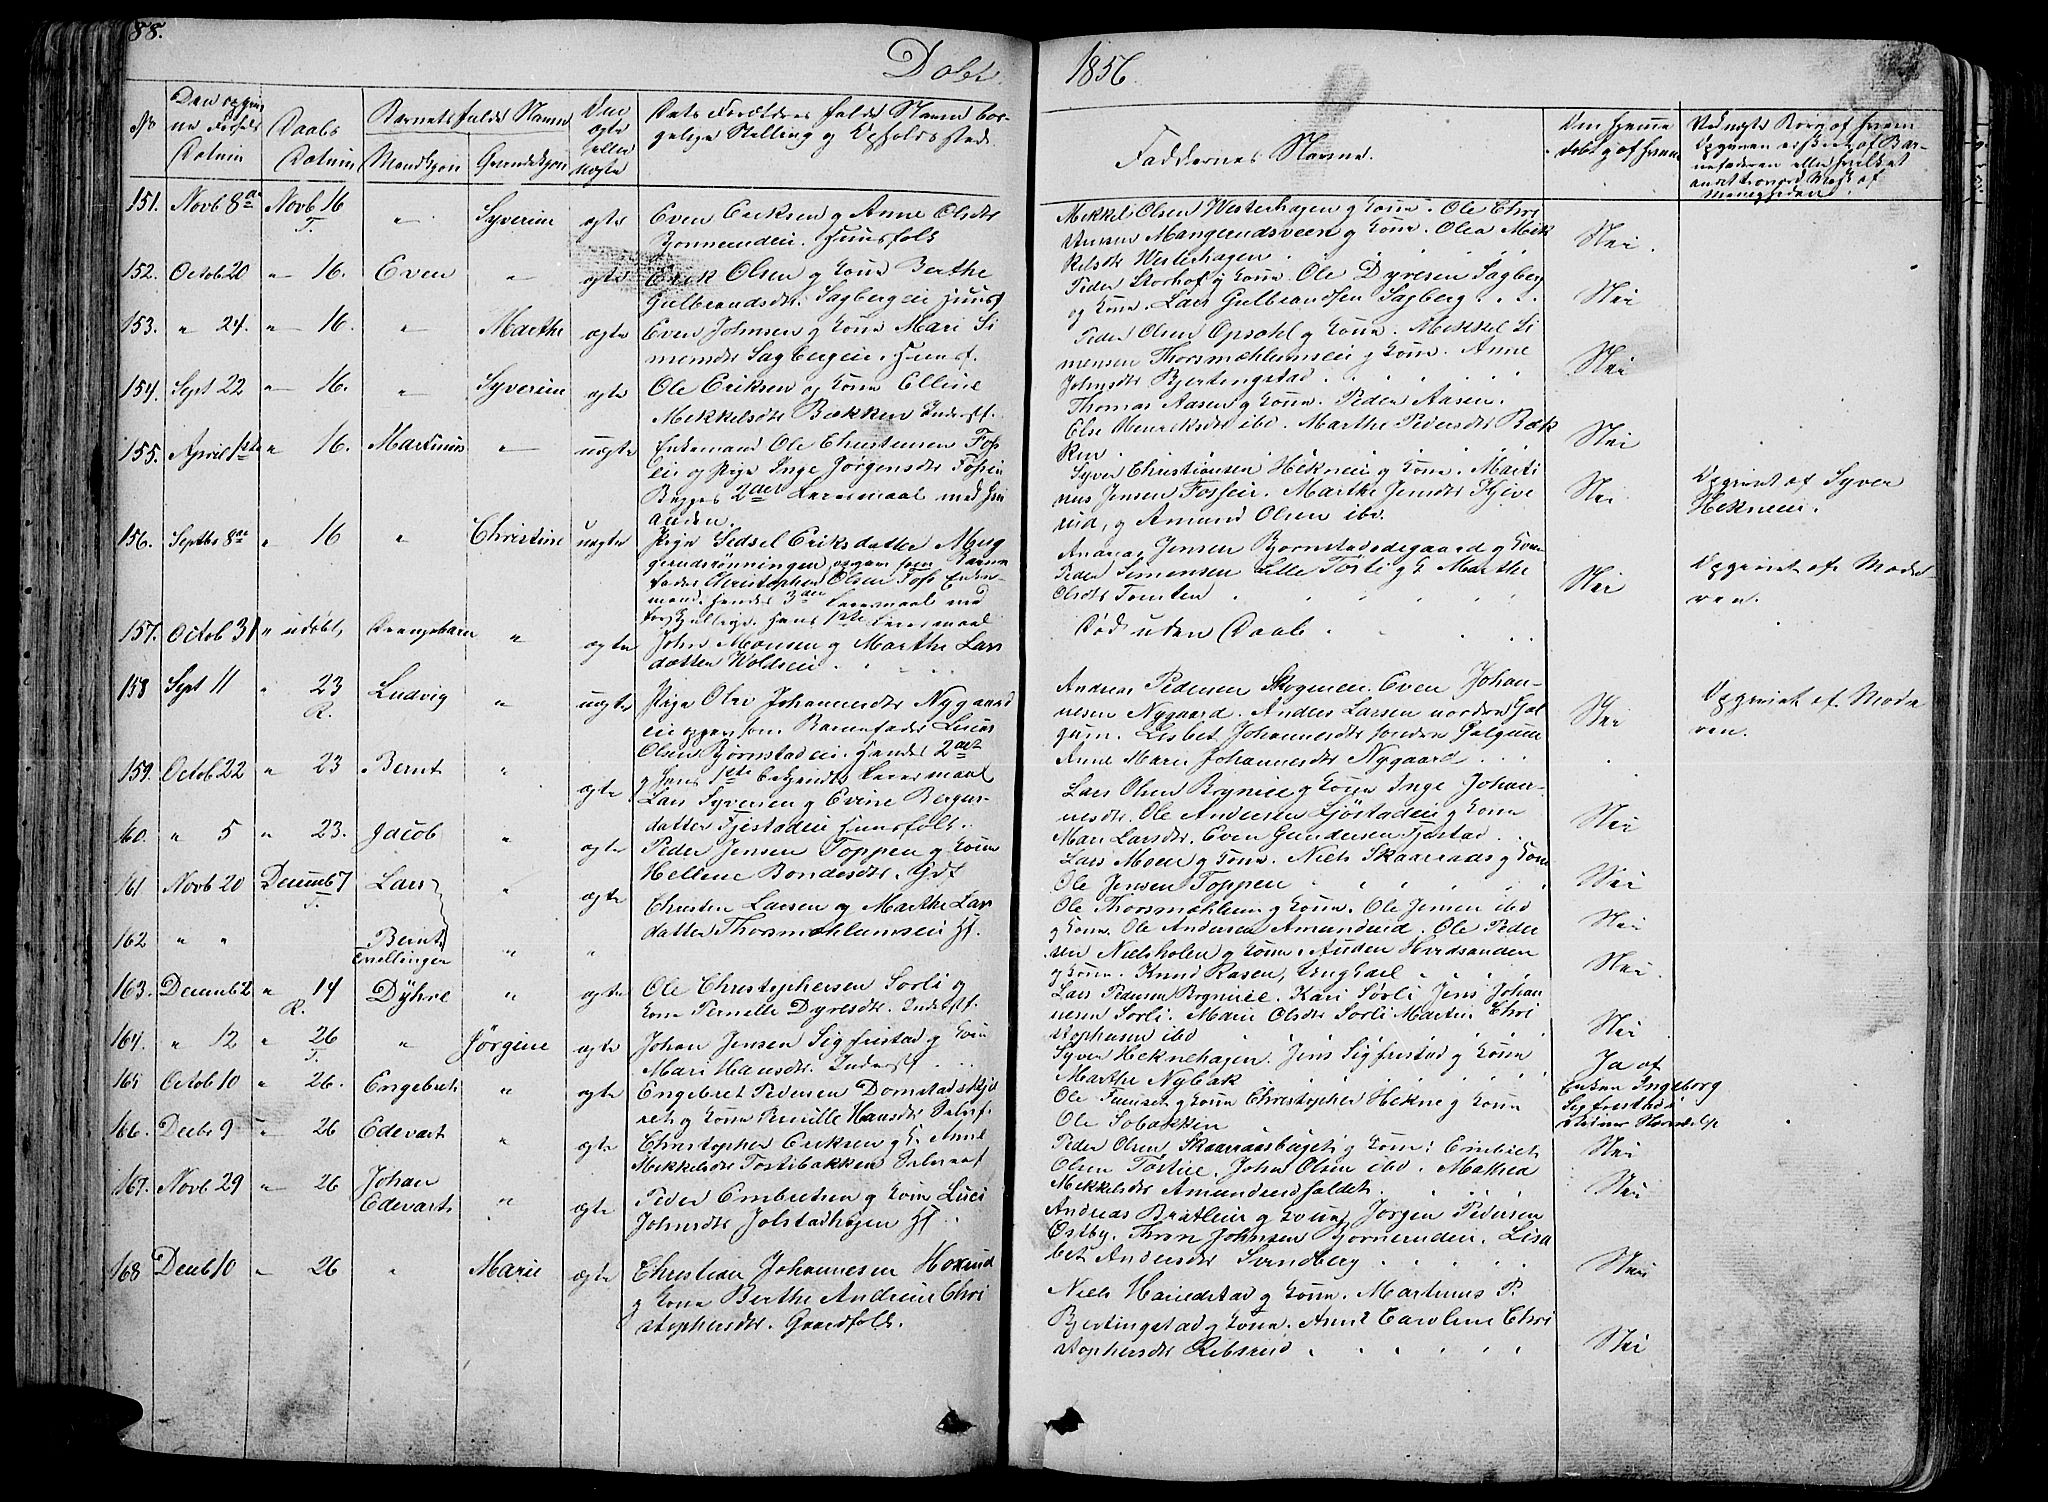 88.
Døbte
1856.
No
Daabs
Datum
Barnets fulde Navn
Mandkjøn
Qvindekjøn
ægte
eller
uægte
Dets Forældres fulde Navne bor-
gelige Stilling og Opholdssted.
Faddernes Navne.
151. Novb 8de Novb 16 T. " Syverine ægte
Even Eriksen og Anne Olsdtr
Huusfolk
Mikkel Olsen Westerhagen og Kone. Ole Chri
stensen Mangerudsveen og Kone. Olea Mik
kelsdtr Westerhagen.
Nei.
152. Octob 20 " 16. Even " ægte
Erik Olsen og Kone Berthe
Gulbrandsdtr. Sagbergeie Huusf
Peder Storhof og Kone. Ole Dyresen Sagberg
og Kone. Lars Gulbrandsen Sagberg
Nei
153. " 24. " 16. " Marthe ægte
Even Johnsen og Kone Mari Si
mensdtr Sagbergeie. Huusf.
Peder Olsen Opsahl og Kone. Mikkel Si
mensen Thorsmæhlumseie og Kone. Anne
Johnsdtr Bjertingstad
Nei
154. Sept 22 " 16. " Syverine ægte
Ole Eriksen og Kone Elline
Mikkelsdtr Bækken Inderst.
Thomas Aasen og Kone. Peder Aasen.
Else Henriksdtr ibd. Marthe Pedersdtr Bæk
ken.
Nei
155. April 1ste " 16. Martinus " uægte
Enkemand Ole Christensen Fos
eie og Pige Inge Jørgensdtr Foseie
Begges 2det Leiermaal med hin
anden.
Syver Christiansen Hekneeie og Kone. Marti
nus Jensen Fosseie. Marthe Jensdtr Kjeve
rud, og Amund Olsen ibd.
Nei
Opgivet af Syver
Hekneeie.
156. Septbr 8de " 16 " Christine uægte
Pige Sidsel Eriksdatter Meg
gerudsrønningen opgav som Barne
fader Christopher Olsen Fos Enke
mand. Hendes 3die Leiermaal med
forskjellige. Hans 1ste Leiermaal
Andreas Jensen Bjørnstadødegaard og Kone
Peder Simensen Lille Tosti og K. Marthe
Olsdtr Tomten
Nei
Opgivet af Mode-
ren.
157. Octob 31 " udøbt, Drengebarn " ægte
John Monsen og Marthe Lars
datter Woldseie
Død uden Daab.
158 Sept 11 " 23 R. Ludvig " uægte
Pige Olea Johannesdtr Nygaard
eie opgav som Barnefader Lucas
Olsen Bjørnstadeie. Hendes 2det
og hans 1ste bekjendte Leiermaal
Andreas Pedersen Skogmeie. Even Johan-
nesen Nygaard. Anders Larsen nordre Gal
gum. Lisbet Johannesdtr søndre Galgum
Anne Marie Johannesdtr Nygaard
Nei
Opgivet af Mode
ren.
159. Octob 22 " 23 Bernt " ægte
Lars Syversen og Eveine Berger-
datter Fjestadeie Huusfolk.
Lars Olsen Brynieie og Kone Inge Johan-
nesdtr. Ole Andersen Fjöstadeie og Kone
Mari Larsdtr. Even Gundersen Fjestad
Nei
160. " 5 " 23. Jacob " ægte
Peder Jensen Toppen og Kone
Hellene Bondesdtr. Gdf
Lars Moen og Kone. Niels Skaaraas og Kone
Ole Jensen Toppen
Nei
161 Novb 20 Decemb 7 T. Lars " ægte
Christen Larsen og Marthe Lars
datter Thorsmæhlumseie Hf.
Ole Thorsmæhlum og Kone. Ole Jensen ibd
og Kone. Ole Andersen Amundrud. Ole Peder
Nei
162 " " Bernt Tvillinger " "
sen Nielsholen og Kone Auden Hverdsanden
og Kone. Knud Rasen, Ungkarl
Nei.
163. Decemb 2 " 14 R. Dyhre " ægte
Ole Christophersen Sorli og
Kone Pernille Dyresdtr. Inderstf.
Lars Pedersen Brynieie. Kari Sørli Jens Johan
nesen Sorli. Marie Olsdtr Sorli Martin Chri
stophersen ibd
Nei
164. " 12 " 26 T. " Jørgine ægte
Johan Jensen Sigfrestad og Kone
Mari Hansdtr. Inderst
Syver Heknehagen. Jens Sigfrestad og Kone
Marthe Nybak
Ja af
Enken Ingeborg
165 Octob 10 " 26. Engebret " ægte
Engebret Pedersen Domstadskjæ
ret og Kone Pernille Hansdtr
Ole Furuset og Kone Christopher Hekne og Kone
Ole Sobakken
166. Decbr 9 " 26 Edevart " ægte
Christopher Eriksen og K. Anne
Mikkelsdtr Tostibakken
Peder Olsen Skaaraasbaget og Kone. Embret
Olsen Tostieie. John Olsen ibd. Mathea
Mikkelsdtr Amundrudfaldet.
Nei
167. Novb 29 " 26 Johan Edevart " ægte
Peder Embretsen og Kone Luci
Johnsdtr Jolstadhagen Hf
Andreas Bratlieie og Kone Jørgen Pedersen
Østby. Thron Johnsen Bjørnerudeie. Lisa
bet Andersdtr Svendberg
Nei
168 Decb 10 " 26 " Marie ægte
Christian Johannesen Hoxrud
og Kone Berthe Andrea Chri
stophersdtr. Gaardfolk.
Niels Harildstad og Kone. Martinus P.
Bjertingstad og Kone. Anne Caroline Chri
stophersdtr Ribsrud
Nei